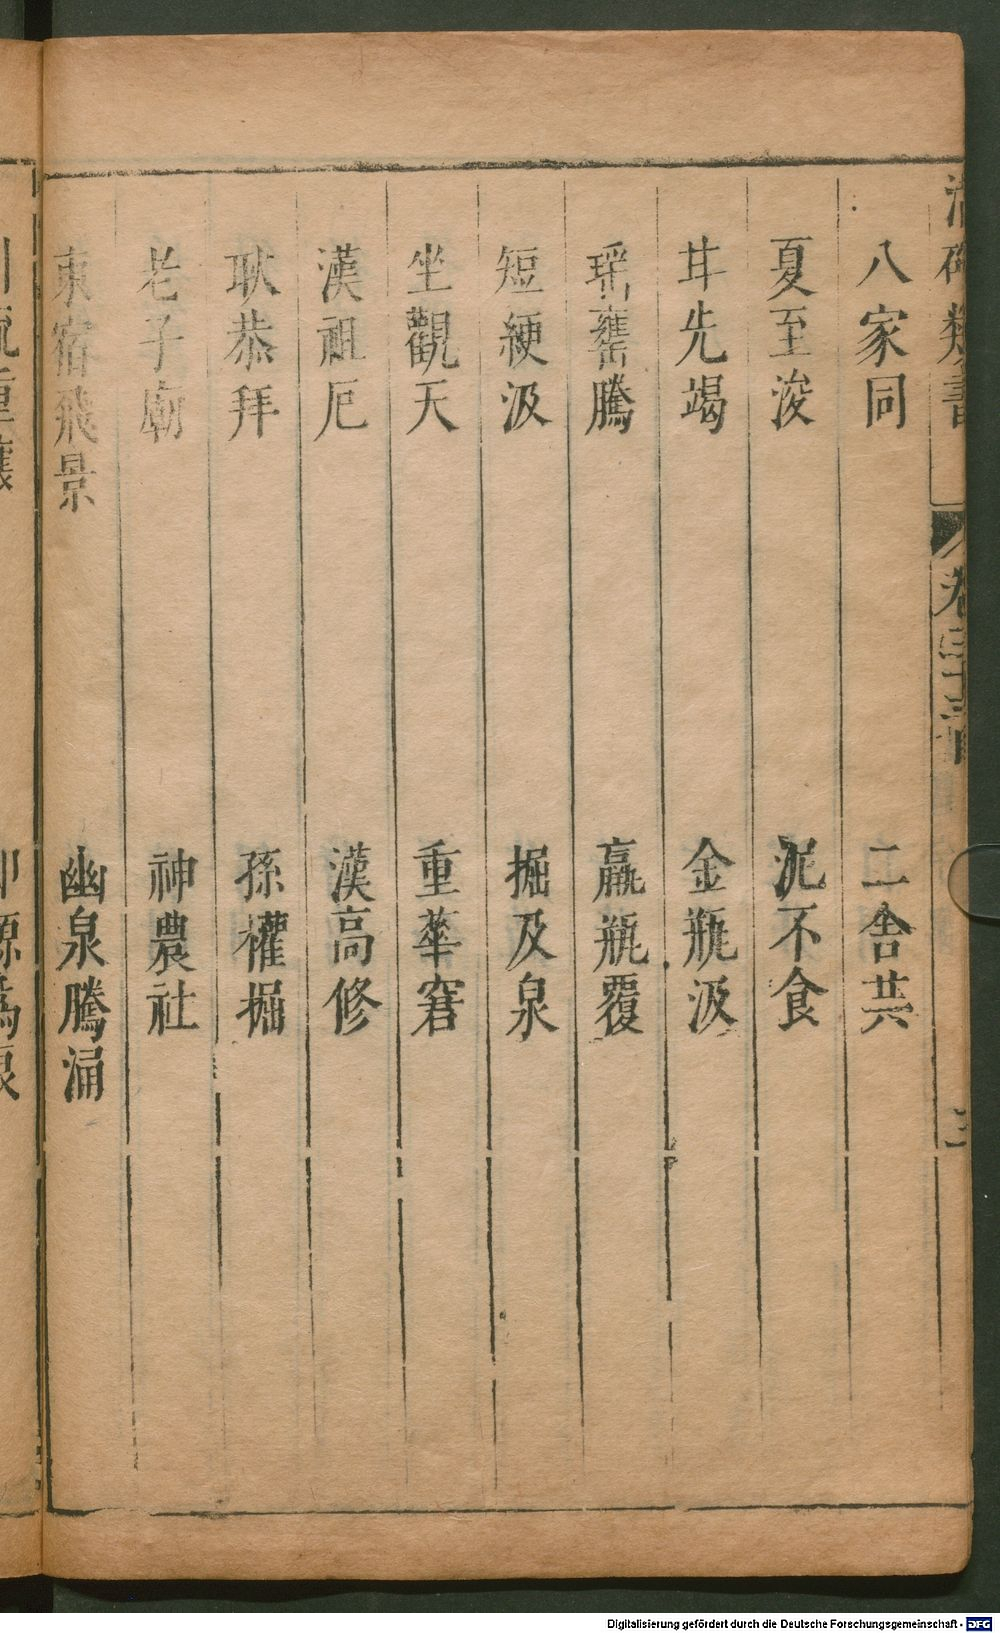 清碑類書 卷三十三
八家同 二舍共
夏至浚 泥不食
甘先竭 金瓶汲
瑶甕騰 羸瓶覆
短綆汲 掘及泉
坐觀天 重華窘
漢祖厄 漢高修
耿恭拜 孫權掘
老子廟 神農社
東宿飛景 幽泉騰涌
Digitalisierung gefördert durch die Deutsche Forschungsgemeinschaft - DFG